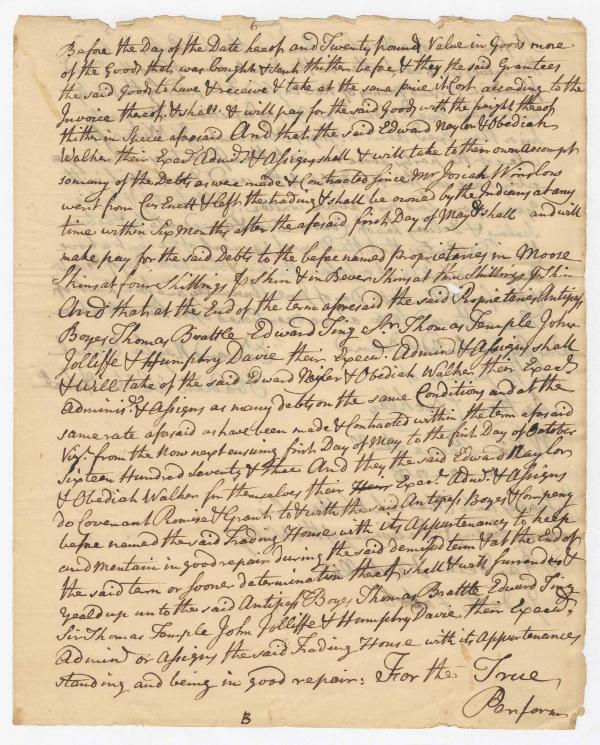 6
Before the Day of the Date heeof and Twenty pound Value in Goods more
of the Goods that was bought & sent thither before & they the said Grantees
the said Goods to have & receive & take at the same price it Cost according to the
Invoice theeof, & shall & will pay for the said Goods with the freight theeof
thither in Specie afoesaid And that the said Edward Naylor & Obediah
Walker their Execrs Admrs & Assigns shall & will take to their own accompt
so many of the Debts as wee made & Contracted since Mr Josiah Winslow
went from & left the trading & shall be owned by the Indians at any
time within Six Months after the afoesaid first Day of May & shall and will
make pay for the said Debts to the before named proprietaries in Moose
Skins at four Shillings p Skin & in Bever Skins at Shillings p Skin
And that at the End of the term aforesaid the said Proprietaries Antipas
Boyes Thomas Brattle Edward Ting Sir Thomas Temple John
Jolliffe & Humphry Davie their Execrs Admin & Assigns shall
& will take of the said Edward Naylor & Obediah Walker their Execrs
Adminis & Assigns as many debts on the same Conditions and at the
same rate afoesaid as have been made & Contracted within the term afoesaid
Vizt from the Now next ensuing first Day of May to the first Day of October
Sixteen Hundred Seventy & thee And they the said Edward Naylor
& Obediah Walker for themselves their Execrs Admrs & Assigns
do Covenant Promise & Grant to & with the said Antipas Boyes & Company
before named the said Trading House with its Appurtenances to keep
and mentain in good repair during the said demised term & at the End of
the said term or sooner determination theeof shall & will surrender &
yeald up unto the said Antipas Boyes Thomas Brattle Edward Ting
Sir Thomas Temple John Jolliffe & Humphry Davie their Execrs
Admin or Assigns the said Trading House with its Appurtenances
standing and being in good repair: For the True
Perform
B